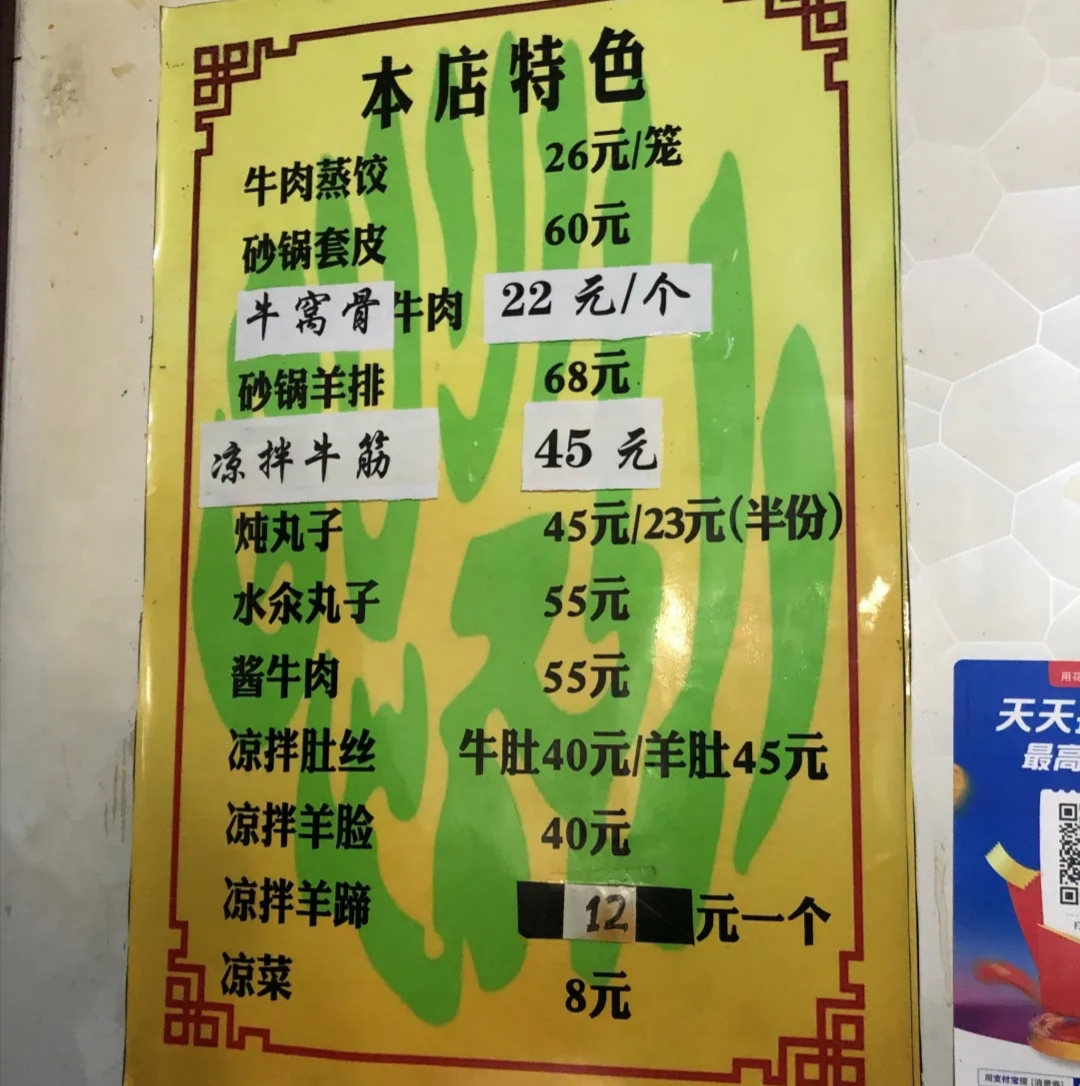 本店特色
牛肉蒸饺 26元/笼
砂锅套皮 60元
牛窝骨牛肉 22元/个
砂锅羊排 68元
凉拌牛筋 45元
炖丸子 45元/23元(半份)
水汆丸子 55元
酱牛肉 55元
凉拌肚丝 牛肚40元/羊肚45元
凉拌羊脸 40元
凉拌羊蹄 12元一个
凉菜 8元
用花
天天
最高